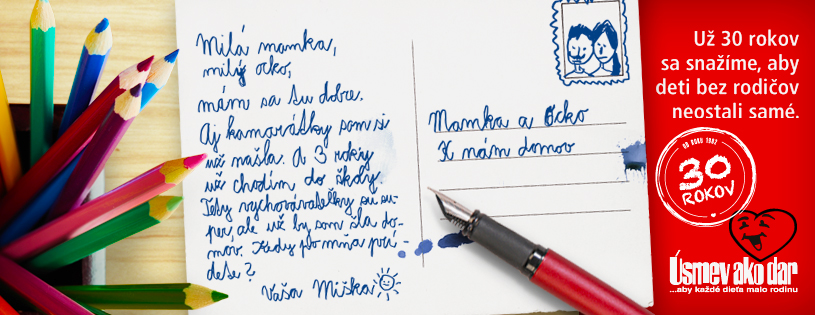 Milá mamka,
milý ocko,
mám sa tu dobre.
Aj kamorátky som si
už našla. A 3 rokzy
už chodím do školy.
Tety vychovávateľky sú su-
per, ale už by som šla do-
mov. Kedy po mňa prí-
dete?
Vaša Miška
Mamka a Ocko
K nám domov
Už 30 rokov
sa snažíme, aby
deti bez rodičov
neostali samé.
OD ROKU 1982
30
ROKOV
Úsmev ako dar
...aby každé dieťa malo rodinu